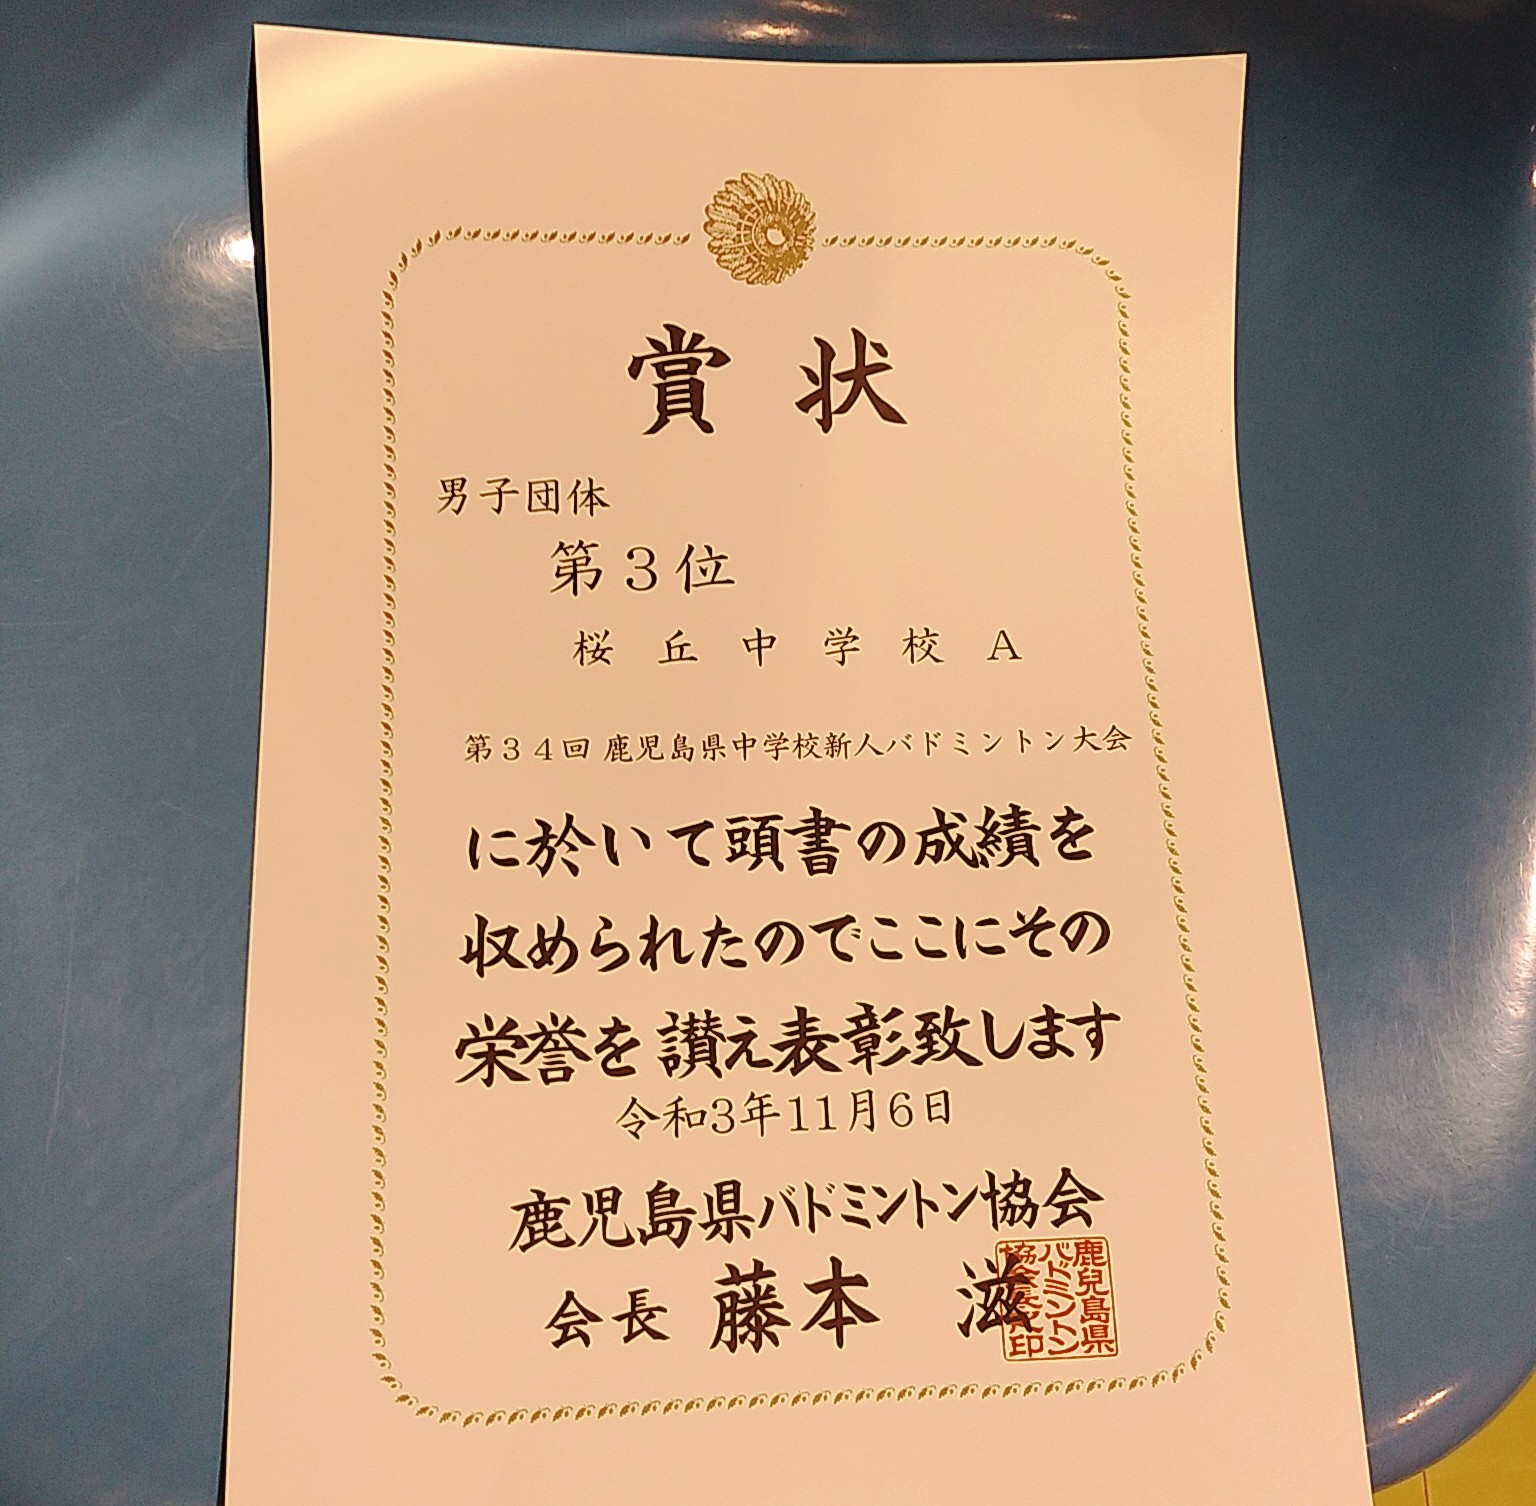 賞状
男子団体
第３位
桜丘中学校Ａ
第３４回 鹿児島県中学校新人バドミントン大会
に於いて頭書の成績を
収められたのでここにその
栄誉を讃え表彰致します
令和3年11月6日
鹿児島県バドミントン協会
会長 藤本 滋
鹿児島県
バドミントン